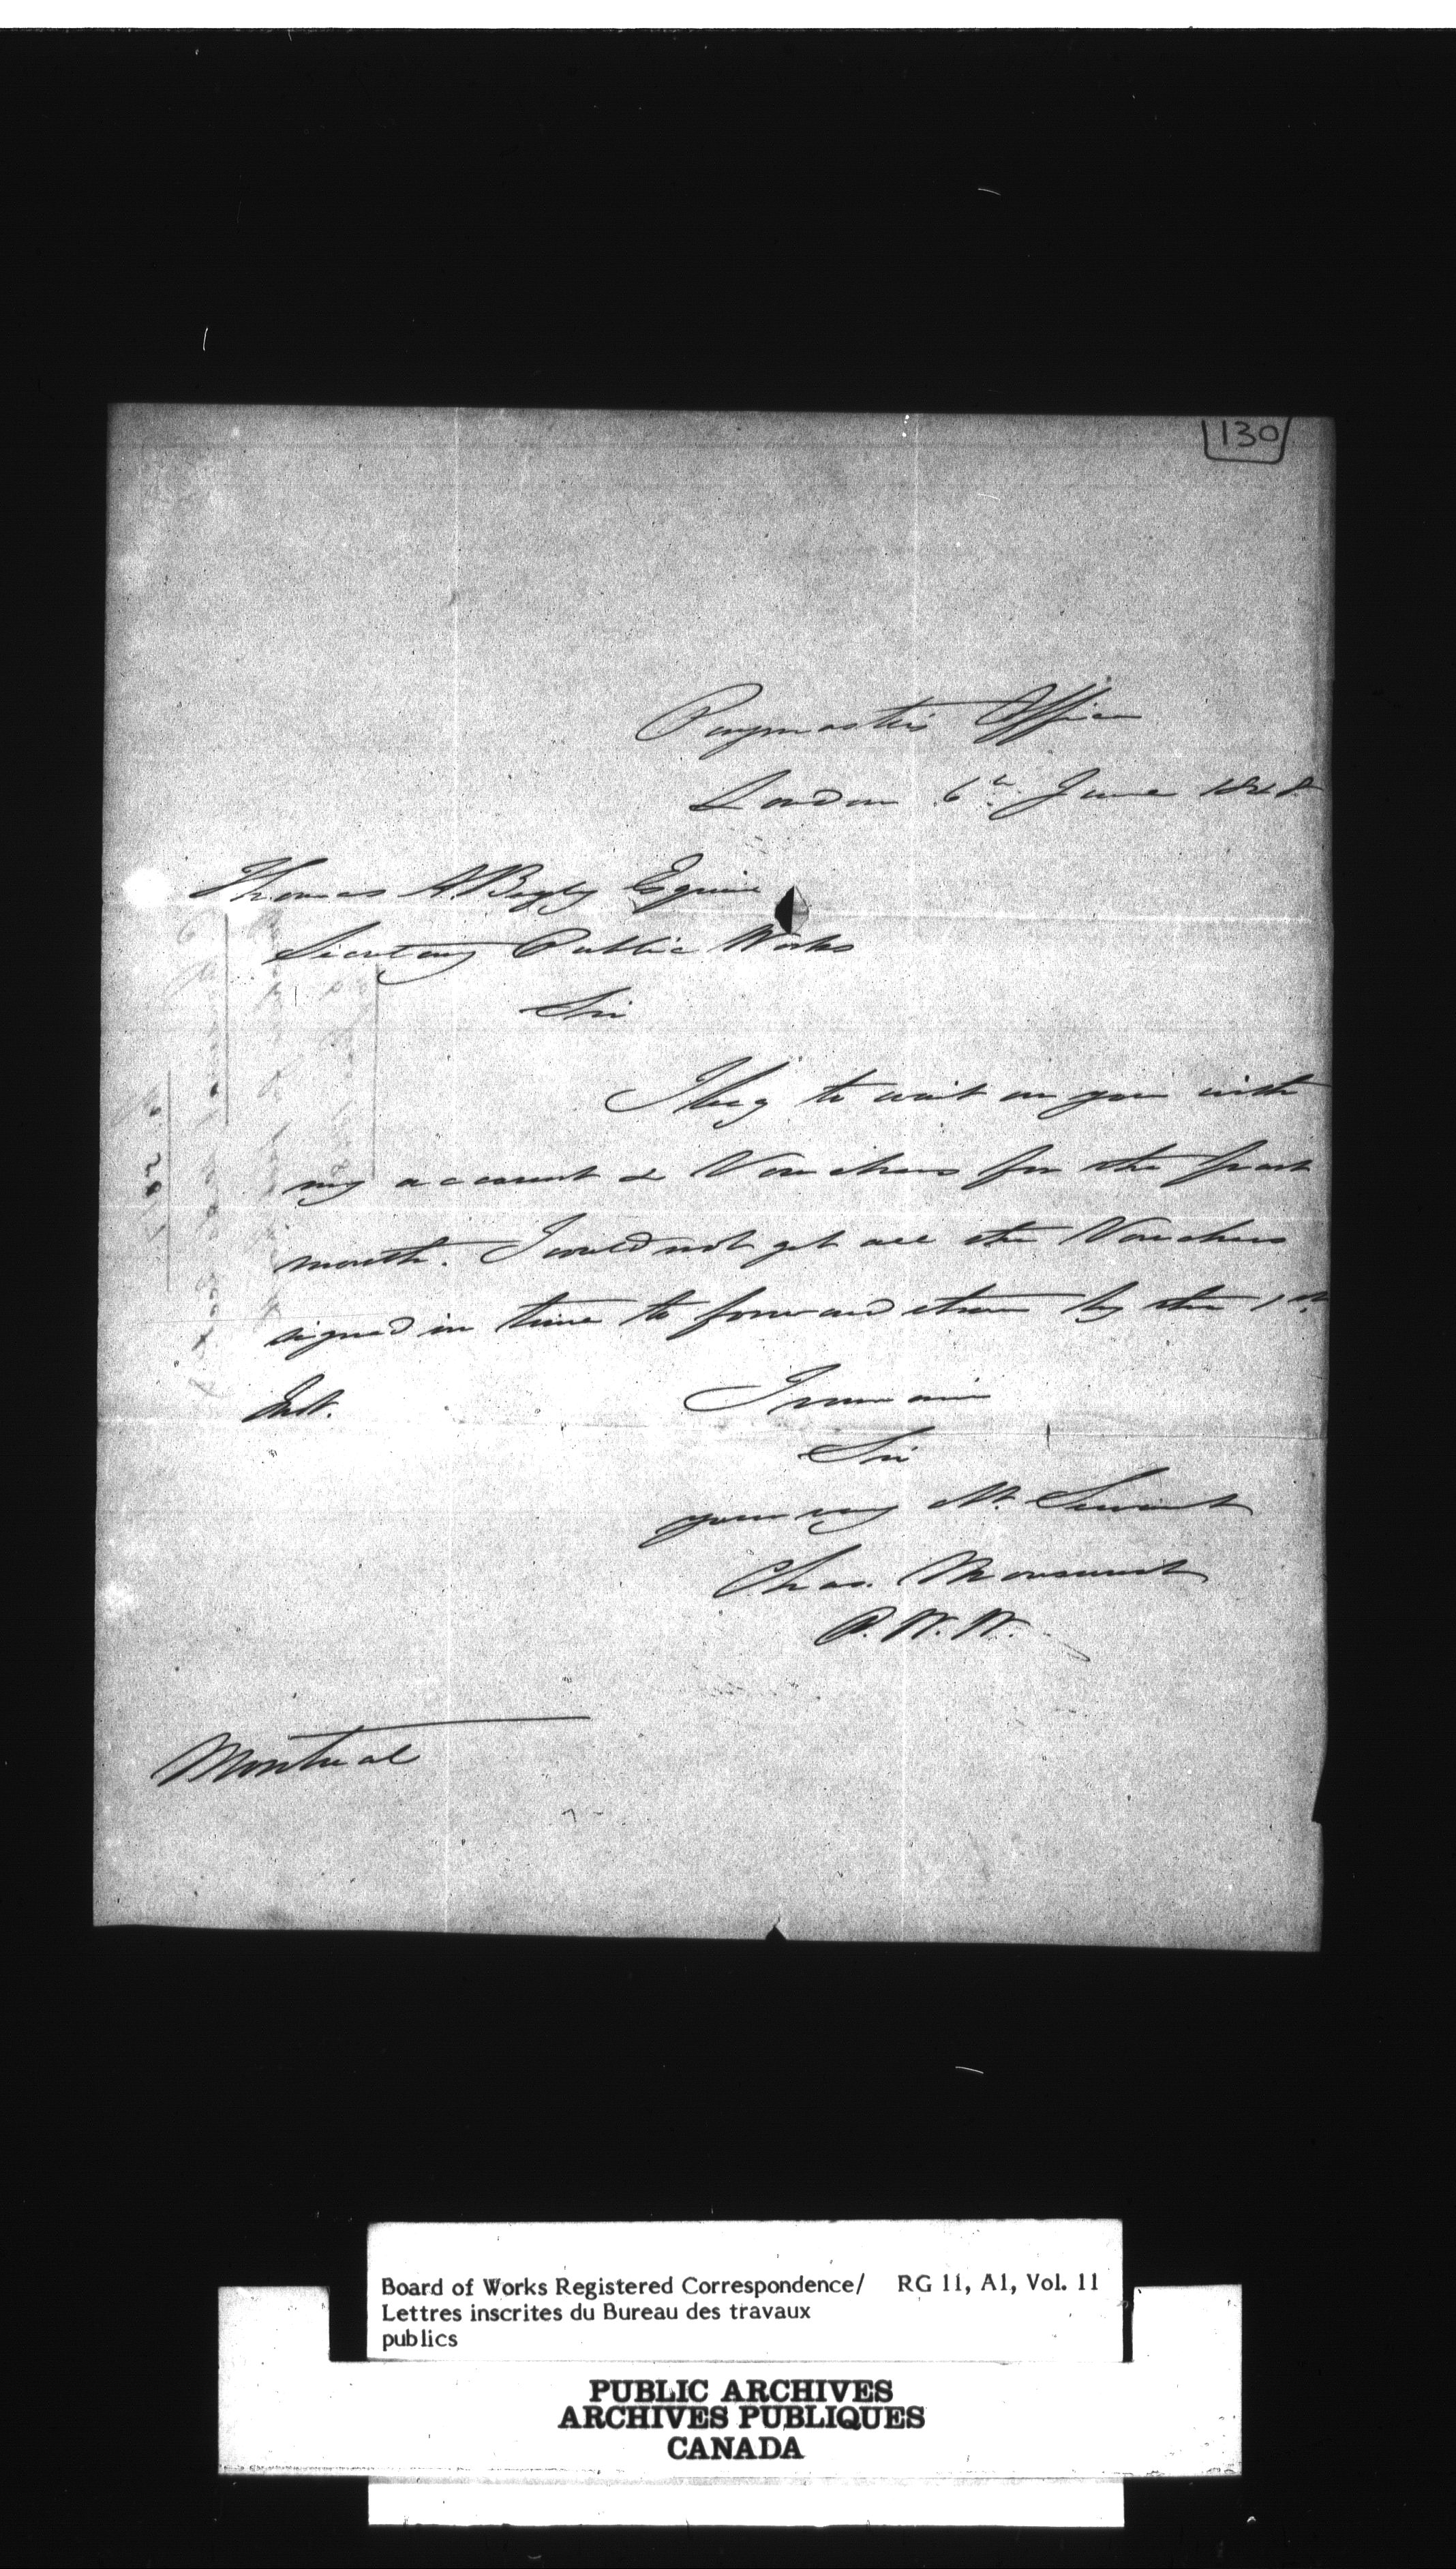 130
Paymasters Office
London 6th June 184
Thomas A. Begly Esquire
Secretary Public Works
Sir
I beg to wait on you with
my account & Vouchers for the past
month. I could not get all the Vouchers
signed in time to forward them by the 1st
Inst.
I remain
Sir
your very Ob. Servant
Chas. Monserrat
P. W. W.
Montreal
Board of Works Registered Correspondence/ RG 11, A1, Vol. 11
Lettres inscrites du Bureau des travaux
publics
PUBLIC ARCHIVES
ARCHIVES PUBLIQUES
CANADA